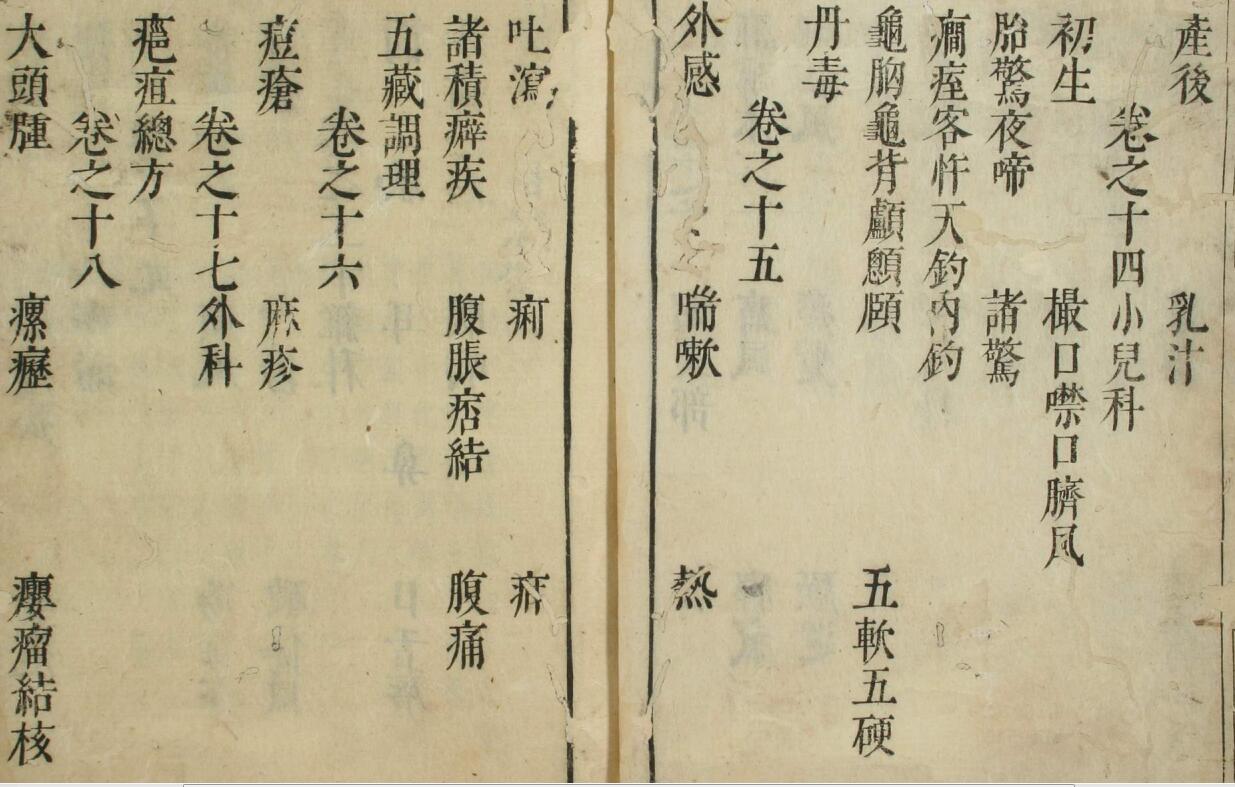 產後 乳汁
卷之十四小兒科
初生 撮口噤口臍風
胎驚夜啼 諸驚
癇痓客忤天釣內釣
龜胸龜背顱顖頤 五軟五硬
丹毒
卷之十五
外感 喘嗽 熱
吐瀉 痢 疳
諸積癖疾 腹脹痞結 腹痛
五藏調理
卷之十六
痘瘡 麻疹
卷之十七外科
疤疽總方
卷之十八
大頭腫 瘰癧 癭瘤結核